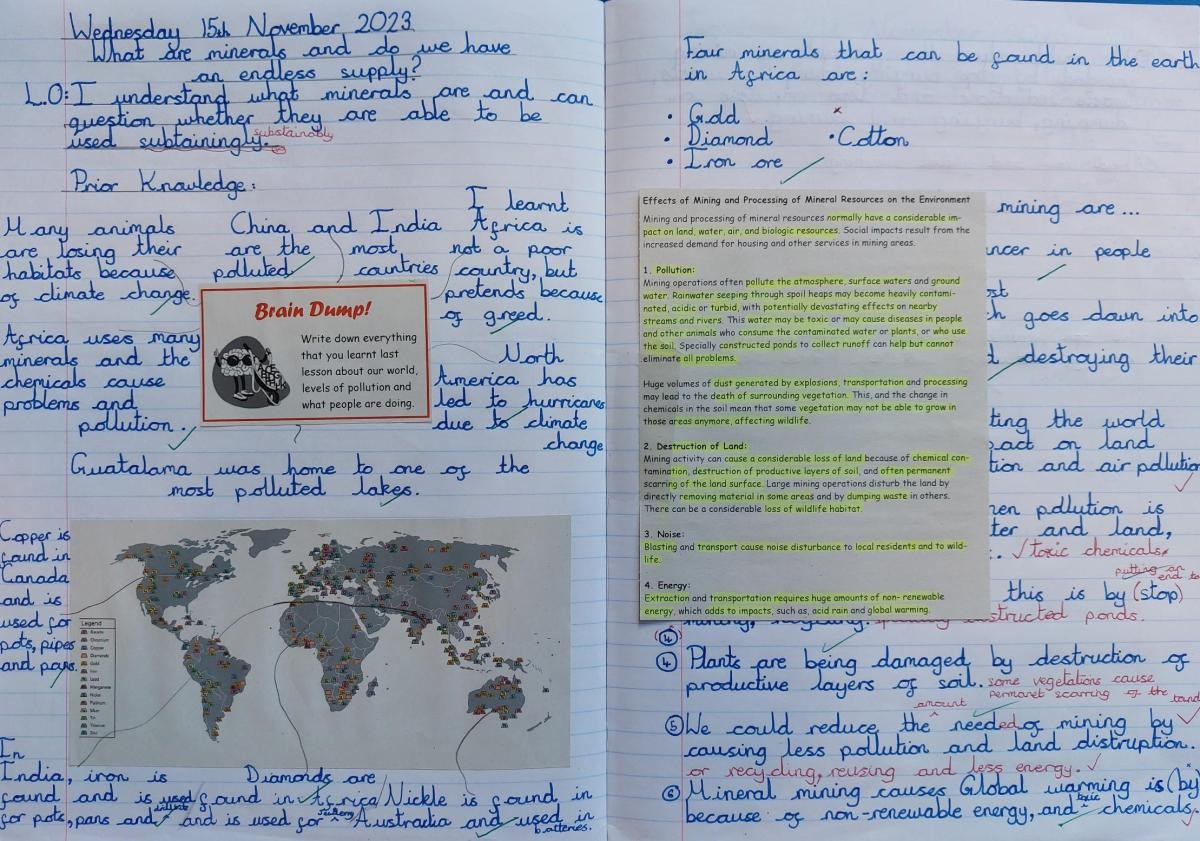 Wednesday 15th November 2023
What are minerals and do we have
an endless supply?
L.O: I understand what minerals are and can
question whether they are able to be
used subtainingly. substainably
Prior Knowledge:
Many animals
are losing their
habitats because
of climate change.
China and India
are the most
polluted countries
I learnt
Africa is
not a poor
country, but
pretends because
of greed.
Africa uses many
minerals and the
chemicals cause
problems and
pollution.
Brain Dump!
Write down everything
that you learnt last
lesson about our world,
levels of pollution and
what people are doing.
North
America has
led to hurricanes
due to climate
change
Guatalama was home to one of the
most polluted lakes.
Copper is
found in
Canada
and is
used for
pots, pipes
and pans.
Legend
Bauxite
Chromium
Copper
Diamonds
Gold
Iron
Lead
Manganese
Nickel
Platinum
Silver
Tin
Titanium
Zinc
In
India, iron is
found and is used
for pots, pans and
Diamonds are
found in Africa
and is used for
Nickle is found in
Australia and used in
batteries.
Four minerals that can be found in the earth
in Africa are:
• Gold
• Diamond
• Cotton
• Iron ore
Effects of Mining and Processing of Mineral Resources on the Environment
Mining and processing of mineral resources normally have a considerable im-
pact on land, water, air, and biologic resources. Social impacts result from the
increased demand for housing and other services in mining areas.
1. Pollution:
Mining operations often pollute the atmosphere, surface waters and ground
water. Rainwater seeping through spoil heaps may become heavily contami-
nated, acidic or turbid, with potentially devastating effects on nearby
streams and rivers. This water may be toxic or may cause diseases in people
and other animals who consume the contaminated water or plants, or who use
the soil. Specially constructed ponds to collect runoff can help but cannot
eliminate all problems.
Huge volumes of dust generated by explosions, transportation and processing
may lead to the death of surrounding vegetation. This, and the change in
chemicals in the soil mean that some vegetation may not be able to grow in
those areas anymore, affecting wildlife.
2. Destruction of Land:
Mining activity can cause a considerable loss of land because of chemical con-
tamination, destruction of productive layers of soil, and often permanent
scarring of the land surface. Large mining operations disturb the land by
directly removing material in some areas and by dumping waste in others.
There can be a considerable loss of wildlife habitat.
3. Noise:
Blasting and transport cause noise disturbance to local residents and to wild-
life.
4. Energy:
Extraction and transportation requires huge amounts of non- renewable
energy, which adds to impacts, such as, acid rain and global warming.
mining are ...
in people
goes down into
destroying their
the world
on land
and air pollution
pollution is
and land,
toxic chemicals.
putting an
end to
this is by (stop)
ponds.
④
④ Plants are being damaged by destruction of
productive layers of soil. some vegetations cause
permanet scarring of the land
amount
⑤ We could reduce the needed of mining by
causing less pollution and land distruption.
or recycling, reusing and less energy.
⑥ Mineral mining causes Global warming is (by)
because of non-renewable energy, and toxic chemicals.